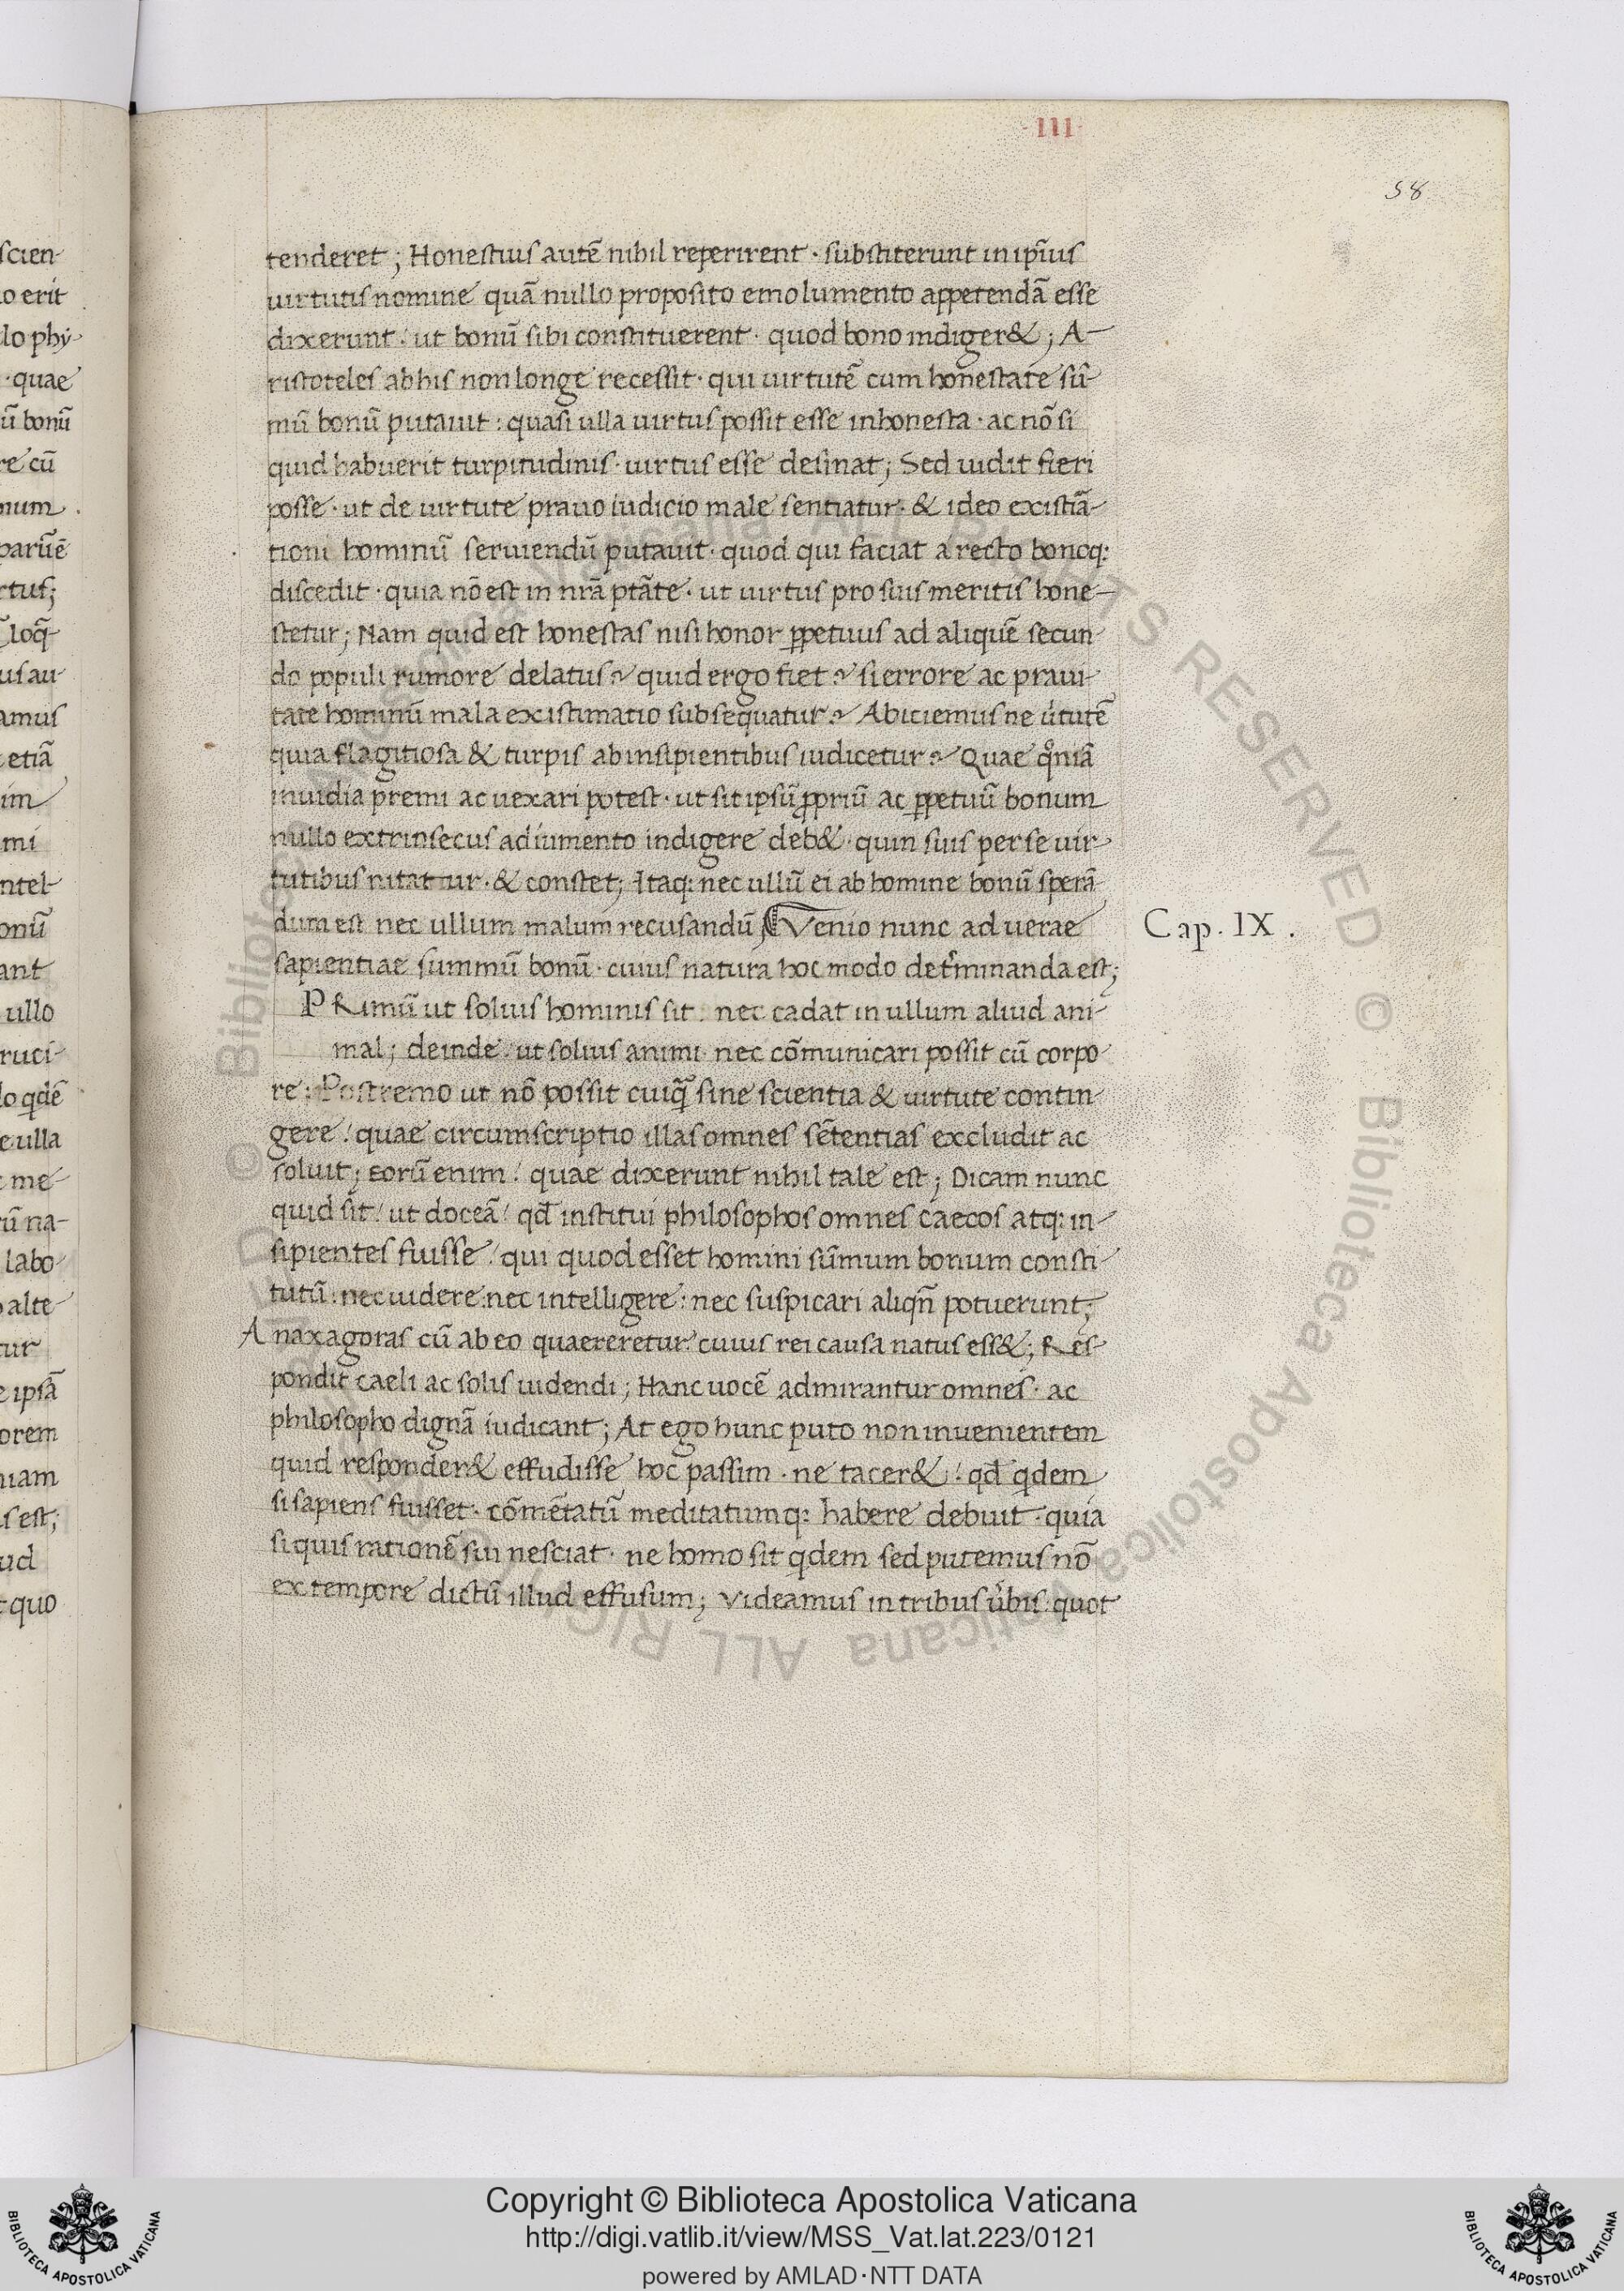 ·III·
58
tenderet; Honestius autē nihil reperirent · substiterunt in ip̄ius
uirtutis nomine quā nullo proposito emolumento appetendā esse
dixerunt / ut bonū sibi constituerent · quod bono indiger&; A-
ristoteles ab his non longe recessit · qui uirtutē cum honestate sū-
mū bonū putauit : quasi ulla uirtus possit esse inhonesta · ac nō si
quid habuerit turpitudinis · uirtus esse desinat; Sed uidit fieri
posse · ut de uirtute prauo iudicio male sentiatur · & ideo existiā-
tioni hominū seruiendū putauit · quod qui faciat a recto bonoq:
discedit · quia nō est in nrā ptāte · ut uirtus pro suis meritis hone-
stetur; Nam quid est honestas nisi honor ꝑpetuus ad aliquē secun-
do populi rumore delatus? quid ergo fiet? si errore ac praui-
tate hominū mala existimatio subsequatur? Abiciemus ne u̇tutē
quia flagitiosa & turpis ab insipientibus iudicetur? Quae qͦniā
inuidia premi ac uexari potest · ut sit ipsū ꝓpriū ac ꝑpetuū bonum
nullo extrinsecus adiumento indigere deb& · quin suis per se uir-
tutibus nitatur · & constet; Itaq: nec ullū ei ab homine bonū sperā-
dum est nec ullum malum recusandū Venio nunc ad uerae
Cap. IX .
sapientiae summū bonū · cuius natura hoc modo det̓minanda est;
PRimū ut solius hominis sit : nec cadat in ullum aliud ani-
mal; deinde · ut solius animi nec cōmunicari possit cū corpo-
re : Postremo ut nō possit cuiq̄ sine scientia & uirtute contin-
gere / quae circumscriptio illas omnes sētentias excludit ac
soluit; Eorū enim / quae dixerunt nihil tale est; Dicam nunc
quid sit / ut doceā / qd̄ institui philosophos omnes caecos atq: in-
sipientes fuisse / qui quod esset homini sūmum bonum consti-
tutū : nec uidere : nec intelligere : nec suspicari aliqn̄ potuerunt;
Anaxagoras cū ab eo quaereretur · cuius rei causa natus ess&; Res-
pondit caeli ac solis uidendi; Hanc uocē admirantur omnes · ac
philosopho dignā iudicant; At ego hunc puto non inuenientem
quid responder& effudisse hoc passim · ne tacer& / qd̄ qdem
si sapiens fuisset · cōmētatū meditatumq: habere debuit · quia
si quis rationē sui nesciat · ne homo sit qdem sed putemus nō
ex tempore dictū illud effusum; Videamus in tribus u̓bis : quot
scien-
o erit
lo phy-
· quae
ū bonū
re cū
num .
paruē
rtus;
loq̄-
us au-
amus
etiā
im
mi
ntel-
onū
ant
ullo
ruci-
lo qdē
e ulla
me-
ū na-
labo-
alte-
tur
e ipsā
orem
niam
s est;
ud
quo
© Biblioteca Apostolica Vaticana ALL RIGHTS RESERVED © Biblioteca Apostolica Vaticana ALL RIGHTS RESERVED
Copyright © Biblioteca Apostolica Vaticana
http://digi.vatlib.it/view/MSS_Vat.lat.223/0121
powered by AMLAD·NTT DATA
BIBLIOTECA APOSTOLICA VATICANA
BIBLIOTECA APOSTOLICA VATICANA